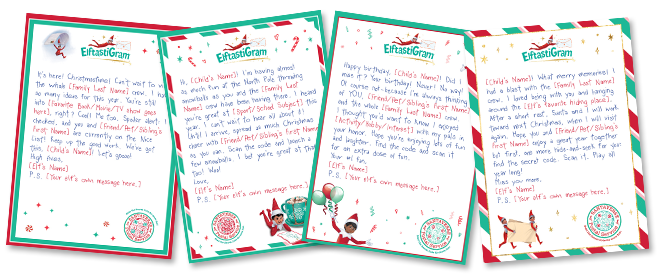 ElftastiGram
It's here! Christmastime! Can't wait to
the whole [Family Last Name] crew. I
so many ideas for this year. You're still
into [Favorite Book/Movie/TV Show goes
here], right? Call me
checker, and you and [Friend/Pet/Sibling's
First Name] are currently on the Nice
List! Keep up the good work. We've got
this, [Child's Name]! Let's gooo!
High fives,
[Elf's Name]
P.S. [Your elf's own message here.]
ElftastiGram
Hi, [Child's Name]! I'm having almost
as much fun at the North Pole throwing
snowballs as you and the [Family Last
Name] crew have been having there. I heard
you're great at [Sport/School Subject] this
year. I can't wait to hear all about it!
Until I arrive, spread as much Christmas
cheer with [Friend/Pet/Sibling's First Name]
as you can. Scan the code and launch a
few snowballs. I bet you're great at that,
too! Woo!
Love,
[Elf's Name]
P.S. [Your elf's own message here.]
ElftastiGram
Happy birthday, [Child's Name]! Did I
miss it? Your birthday? Never! No way!
Of course not—because I'm always thinking
of YOU, [Friend/Pet/Sibling's First Name]
and the whole [Family Last Name] crew.
I thought you'd want to know I enjoyed
[Activity/Hobby/Interest] with my pals in
your honor. Hope you're enjoying lots of fun
and laughter. Find the code and scan it
for an extra dose of fun.
Your #1 fan,
[Elf's Name]
P.S. [Your elf's own message here.]
ElftastiGram
[Child's Name]! What merry memories! I
had a blast with the [Family Last Name]
crew. I loved being with you and hanging
around the [Elf's favorite hiding place].
After a short rest, Santa and I will look
toward next Christmas, when I will visit
again. Hope you and [Friend/Pet/Sibling's
First Name] enjoy a great year together,
but first, one more hide-and-seek for you:
find the secret code. Scan it. Play all
year long!
Miss you more,
[Elf's Name]
P.S. [Your elf's own message here.]